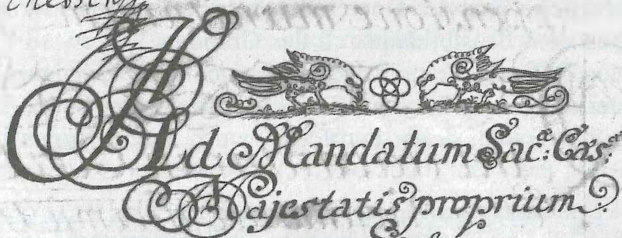 Ad Mandatum Sac:æ Cæs:æ
Majestatis proprium